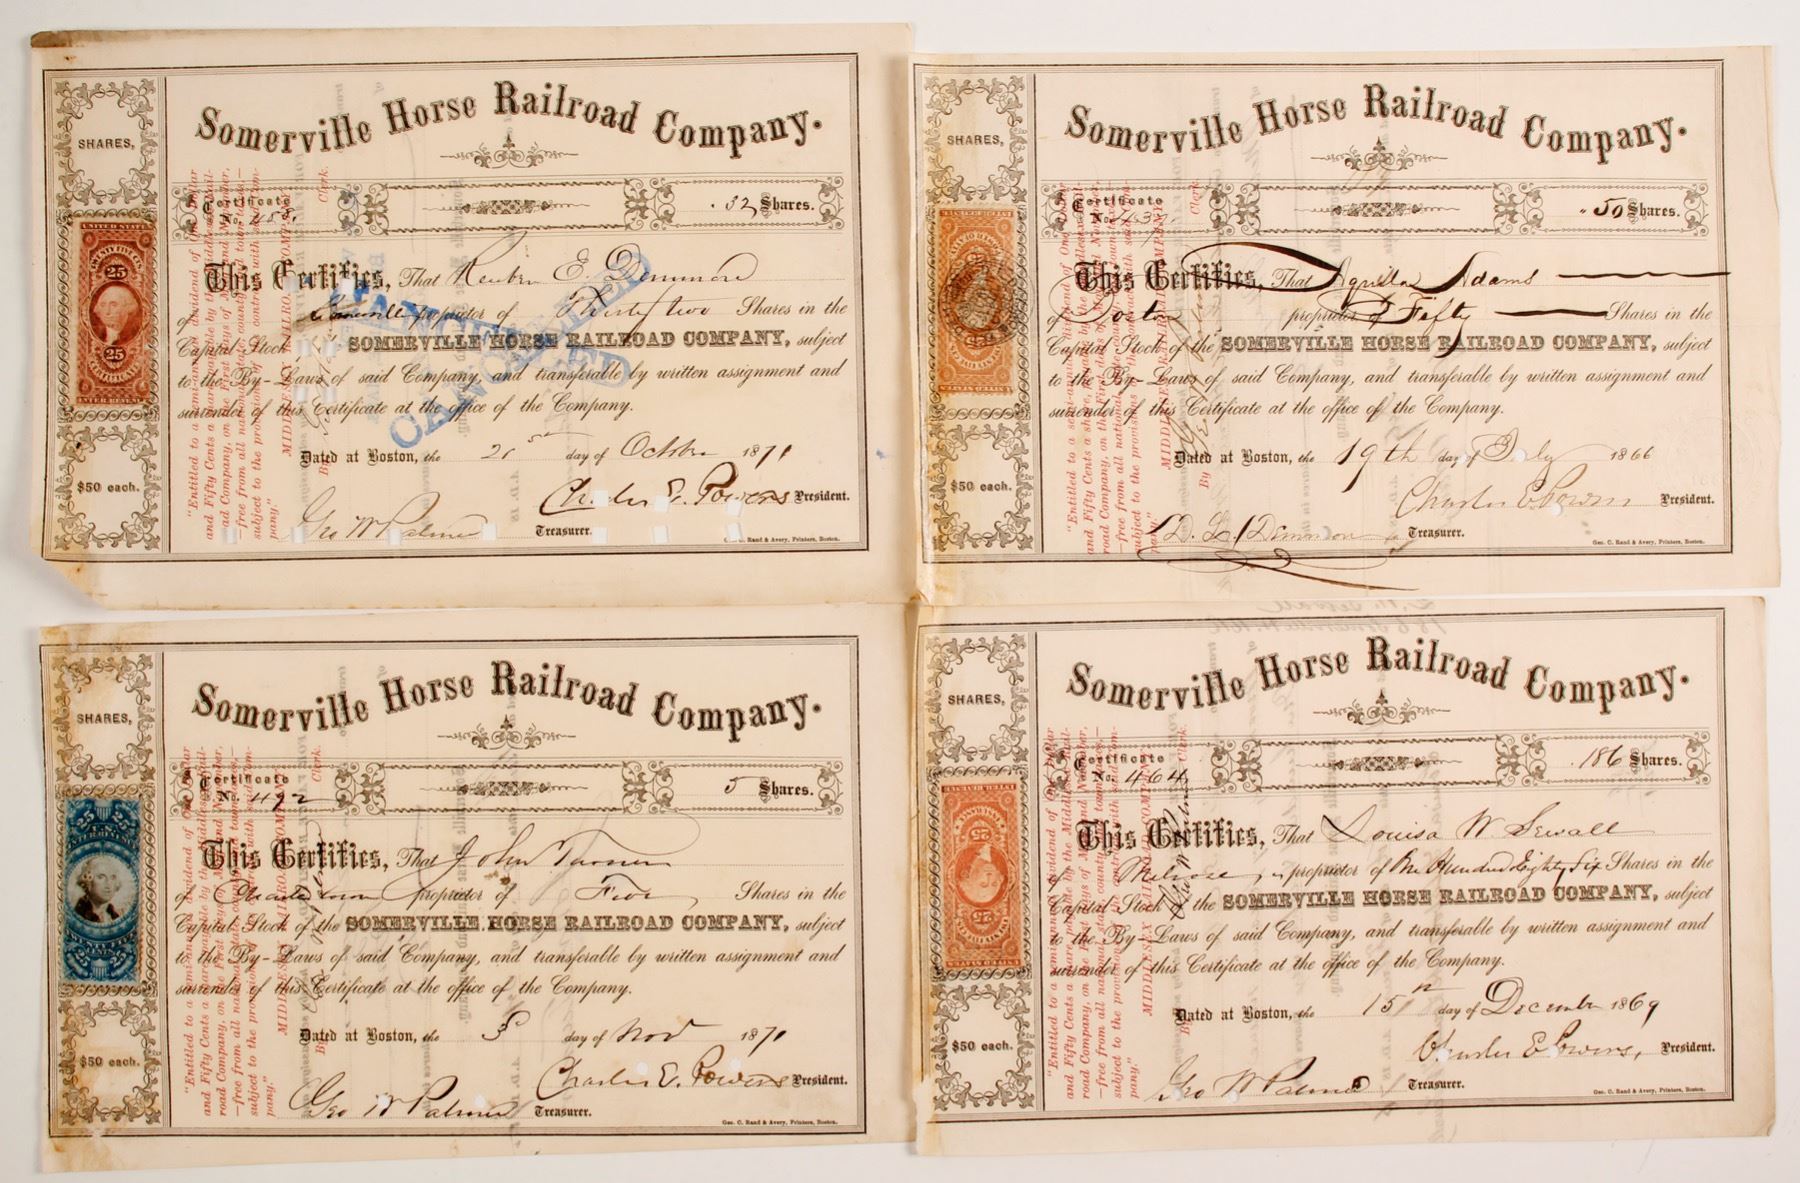 Somerville Horse Railroad Company.
SHARES,
Certificate
No. 455.
32 Shares.
UNITED STATES
TWENTY FIVE CTS.
25
25
CERTIFICATE
INTER. REVENUE
This Certifies, That Reuben E. Demmon
of Somerville proprietor of Thirty two Shares in the
Capital Stock SOMERVILLE HORSE RAILROAD COMPANY, subject
to the By-Laws of said Company, and transferable by written assignment and
surrender of this Certificate at the office of the Company.
CANCELLED
CANCELLED
Dated at Boston, the 25th day of October 1871
$50 each.
Charles E. Powers President.
Geo W Palmer Treasurer.
Geo. C. Rand & Avery, Printers, Boston.
"Entitled to a semi-annual dividend of One Dollar
and Fifty Cents a share, payable by the Middlesex Rail-
road Company, on the First days of May and November,
—free from all national, state, county and town taxes,—
subject to the provisions of contract with said Com-
pany."
MIDDLESEX RAILROAD COMPANY
By
Clerk.
Somerville Horse Railroad Company.
SHARES,
Certificate
No. 437
50 Shares.
This Certifies, That Aquilla Adams
of Boston proprietor of Fifty Shares in the
Capital Stock of the SOMERVILLE HORSE RAILROAD COMPANY, subject
to the By-Laws of said Company, and transferable by written assignment and
surrender of this Certificate at the office of the Company.
Dated at Boston, the 19th day of July 1866
$50 each.
Charles E Powers President.
D. L. Demmon Treasurer.
Geo. C. Rand & Avery, Printers, Boston.
"Entitled to a semi-annual dividend of One Dollar
and Fifty Cents a share, payable by the Middlesex Rail-
road Company, on the First days of May and November,
—free from all national, state, county and town taxes,—
subject to the provisions of contract with said Com-
pany."
MIDDLESEX RAILROAD COMPANY
By
Clerk.
Somerville Horse Railroad Company.
SHARES,
Certificate
No. 492
5 Shares.
25 25
U.S.
INTER. REVENUE
TWENTY FIVE
CENTS
25 25
This Certifies, That John Turner
of Charlestown proprietor of Five Shares in the
Capital Stock of the SOMERVILLE HORSE RAILROAD COMPANY, subject
to the By-Laws of said Company, and transferable by written assignment and
surrender of this Certificate at the office of the Company.
Dated at Boston, the 8 day of Nov 1871
$50 each.
Charles E. Powers President.
Geo W Palmer Treasurer.
Geo. C. Rand & Avery, Printers, Boston.
"Entitled to a semi-annual dividend of One Dollar
and Fifty Cents a share, payable by the Middlesex Rail-
road Company, on the First days of May and November,
—free from all national, state, county and town taxes,—
subject to the provisions of contract with said Com-
pany."
MIDDLESEX RAILROAD COMPANY
By
Clerk.
Somerville Horse Railroad Company.
SHARES,
Certificate
No. 464
186 Shares.
25
25
This Certifies, That Louisa W Sewall
of Melrose, is proprietor of One Hundred Eighty Six Shares in the
Capital Stock of the SOMERVILLE HORSE RAILROAD COMPANY, subject
to the By-Laws of said Company, and transferable by written assignment and
surrender of this Certificate at the office of the Company.
Dated at Boston, the 15th day of December 1869
$50 each.
Charles E Powers, President.
Geo W Palmer Treasurer.
Geo. C. Rand & Avery, Printers, Boston.
"Entitled to a semi-annual dividend of One Dollar
and Fifty Cents a share, payable by the Middlesex Rail-
road Company, on the First days of May and November,
—free from all national, state, county and town taxes,—
subject to the provisions of contract with said Com-
pany."
MIDDLESEX RAILROAD COMPANY
By
Clerk.